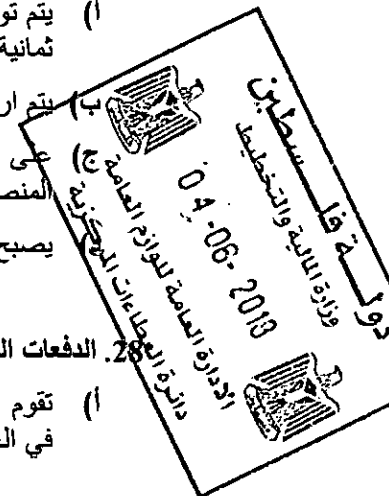 أ) يتم
ثمانية
ب) يتم
ج) على
المنصـ
يصبح
28. الدفعات
أ) تقوم
في
دولـة فلـسـطين
وزارة المالية والتخطيط
04-06-2013
الإدارة العامة للوازم العامة
دائرة العطاءات المركزية